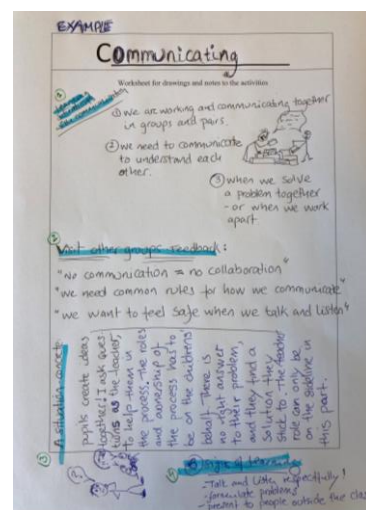 EXAMPLE
Communicating
Worksheet for drawings and notes to the activities
①
① we are working and communicating together
in groups and pairs.
② we need to communicate
to understand each
other.
③ when we solve
a problem together
- or when we work
apart
②
Visit other groups feedback:
"No communication = no collaboration"
"we need common rules for how we communicate"
"we want to feel safe when we talk and listen"
③
A situation concrete
pupils create ideas
together! I ask ques-
tions as the teacher,
to help them in
the process. The roles
and ownership of
the process has to
be on the childrens'
behalf. There is
no right answer
to their problem,
and they find a
solution they
stick to. The teacher
role can only be
on the sideline in
this part.
signs of learning
- Talk and Listen respectfully!
- formulate problems
- present to people outside the clas